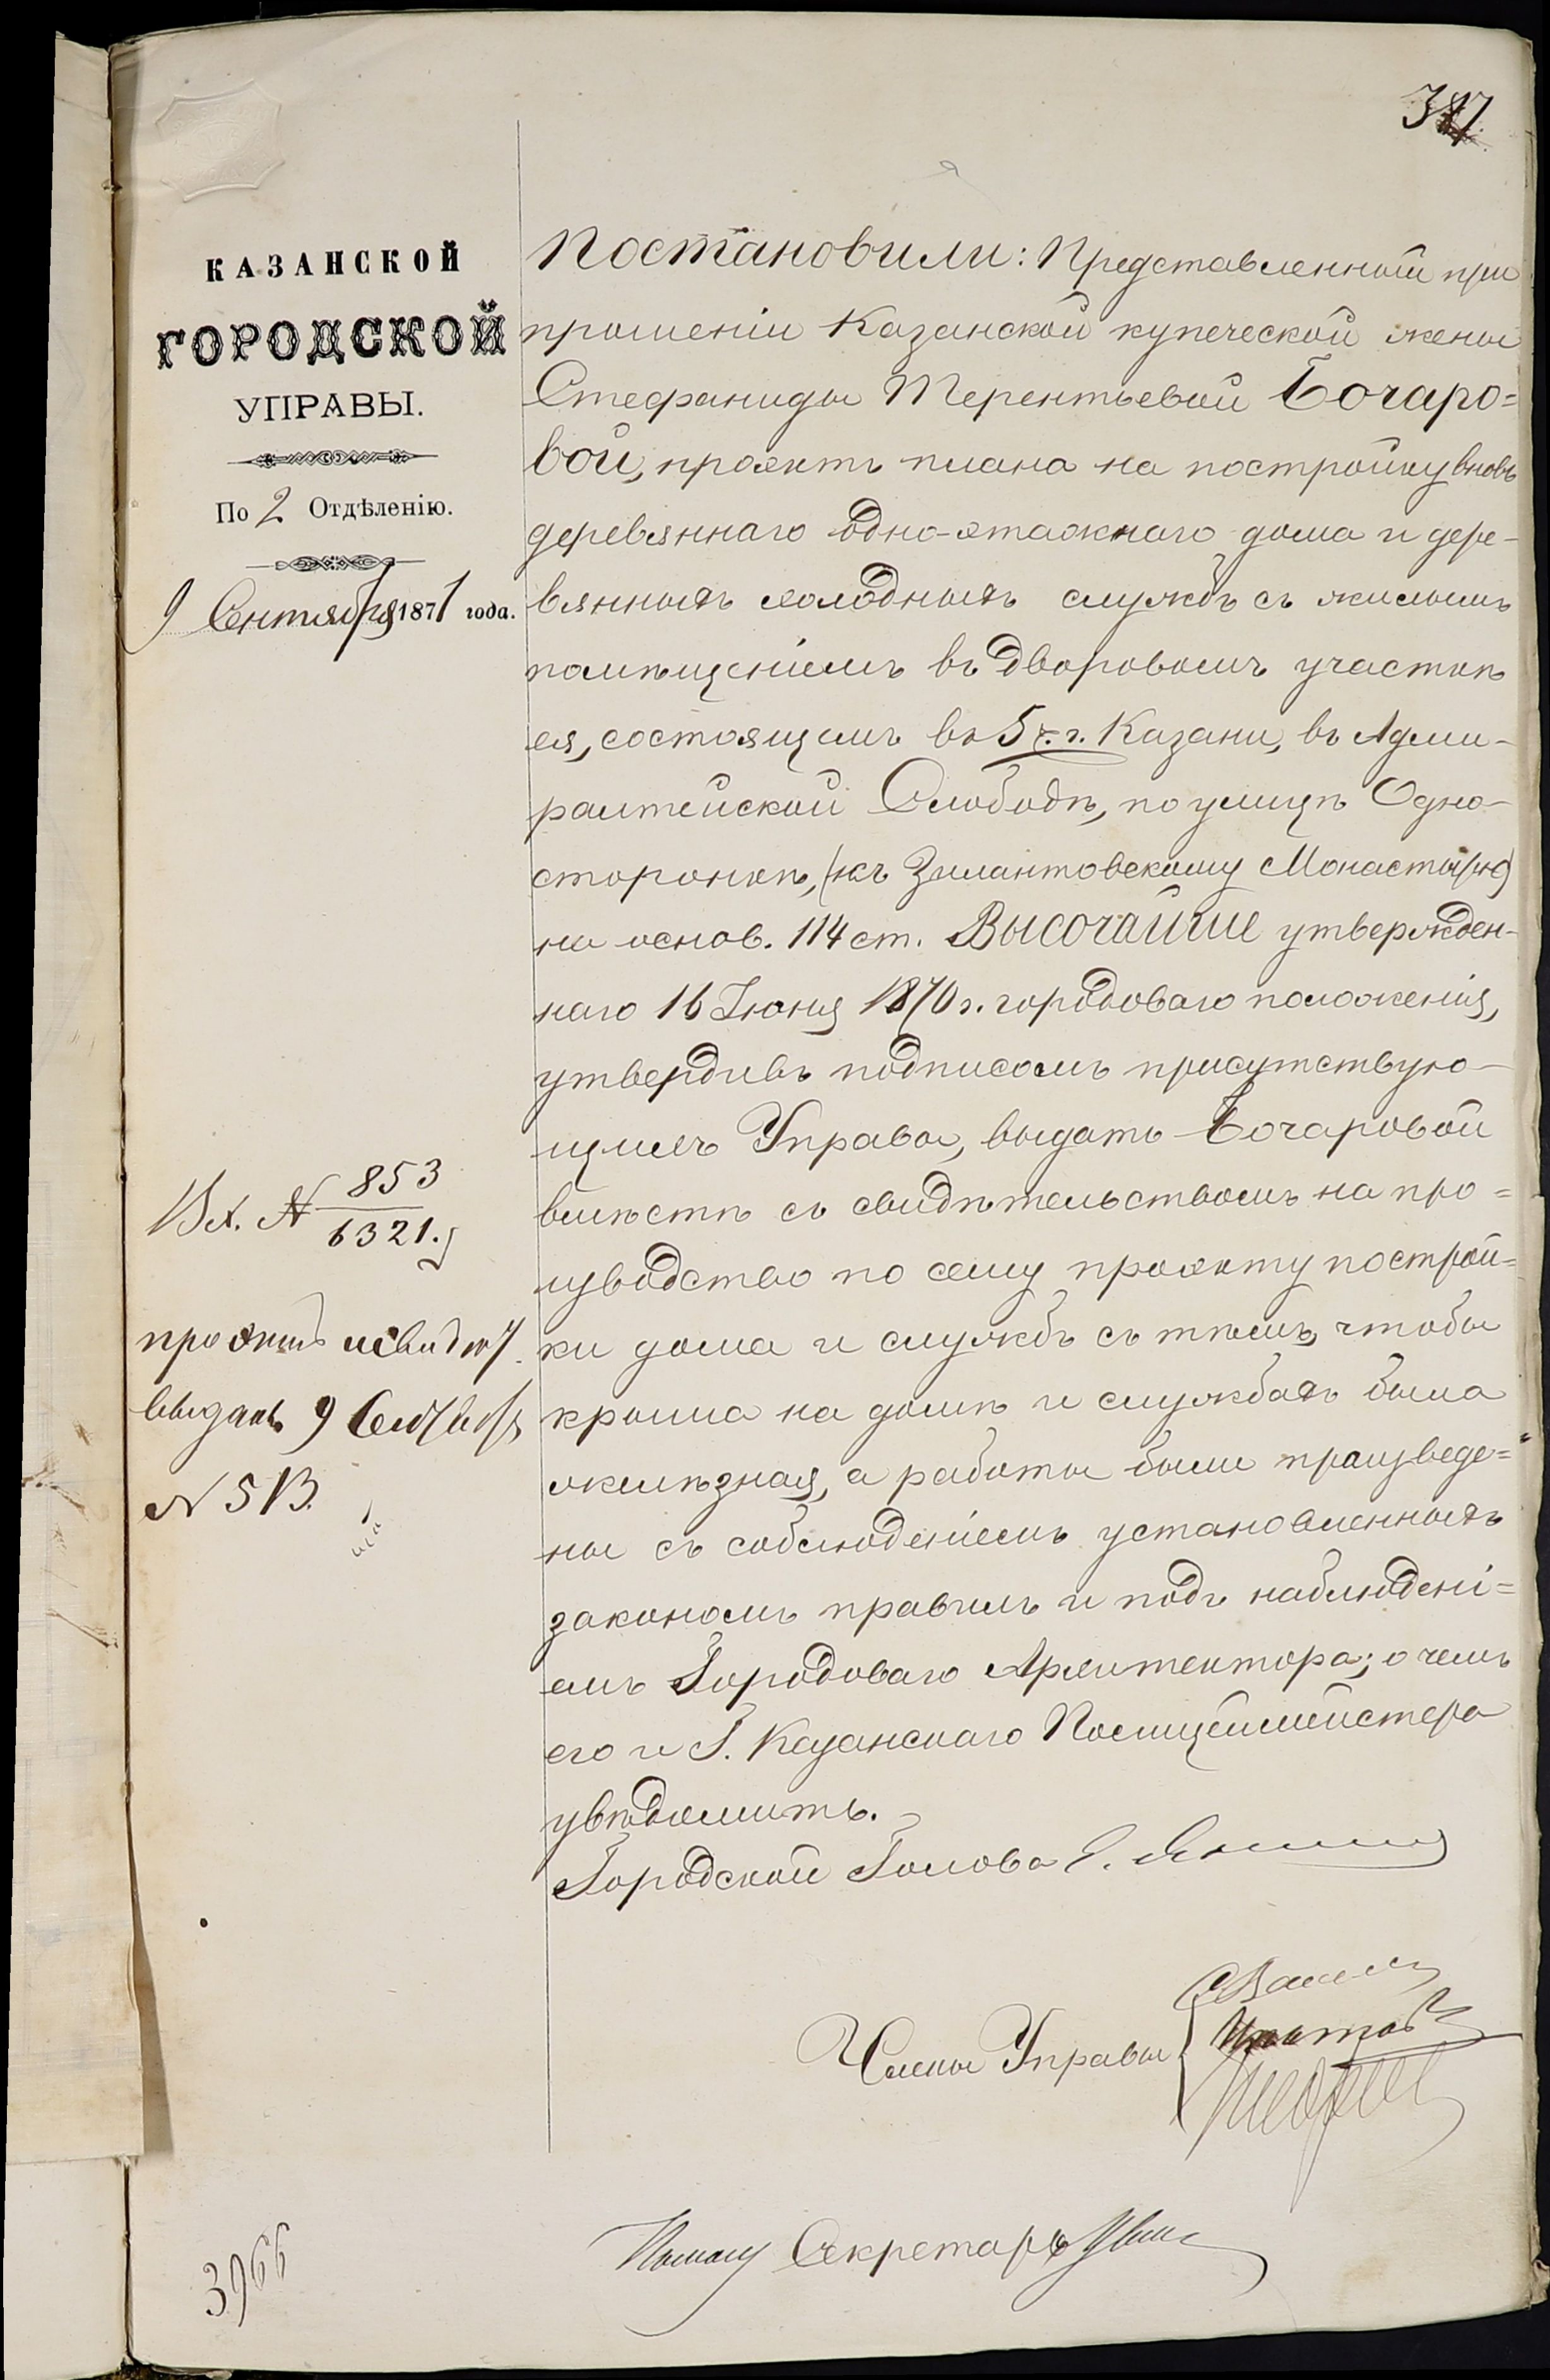 КАЗАНСКОЙ
ГОРОДСКОЙ
УПРАВЫ.
По 2 Отдѣленію.
9 Сентября 1871 года.
Вх. № 853
6321.
проэктъ и свидѣт.
выданъ 9 Сентября
№ 513.
3966
Постановили: Представленный при
прошеніи Казанской купеческой жены
Стефаниды Терентьевой Бочаро=
вой, проэктъ плана на постройку вновь
деревяннаго одно-этажнаго дома и дере-
вянныхъ холодныхъ службъ съ жилымъ
помѣщеніемъ въ дворовомъ участкѣ
ея, состоящемъ въ 5 ч. г. Казани, въ Адми-
ралтейской Слободѣ, по улицѣ Одно-
сторонкѣ, (къ Зилантовскому Монастырю)
на основ. 114 ст. Высочайше утвержден-
наго 16 Іюня 1870 г. городоваго положенія,
утвердивъ подписомъ присутствую-
щихъ Управы, выдать Бочаровой
вмѣстѣ съ свидѣтельствомъ на про=
изводство по сему проэкту построй=
ки дома и службъ съ тѣмъ, чтобы
крыша на домѣ и службахъ была
желѣзная, а работы были произведе=
ны съ соблюденіемъ установленныхъ
закономъ правилъ и подъ наблюдені=
емъ Городоваго Архитектора; о чемъ
его и Г. Казанскаго Полицеймейстера
увѣдомить.
Городской Голова Е.
Члены Управы
Секретарь